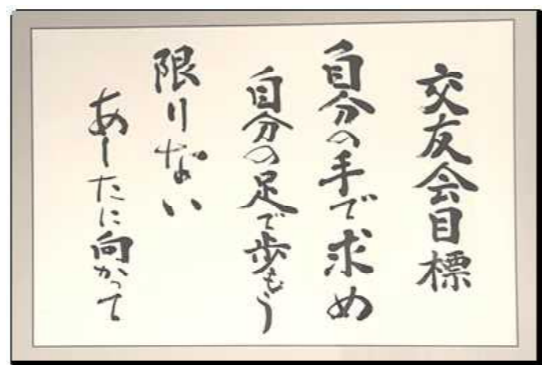 交友会目標
自分の手で求め
自分の足で歩もう
限りない
あしたに向かって